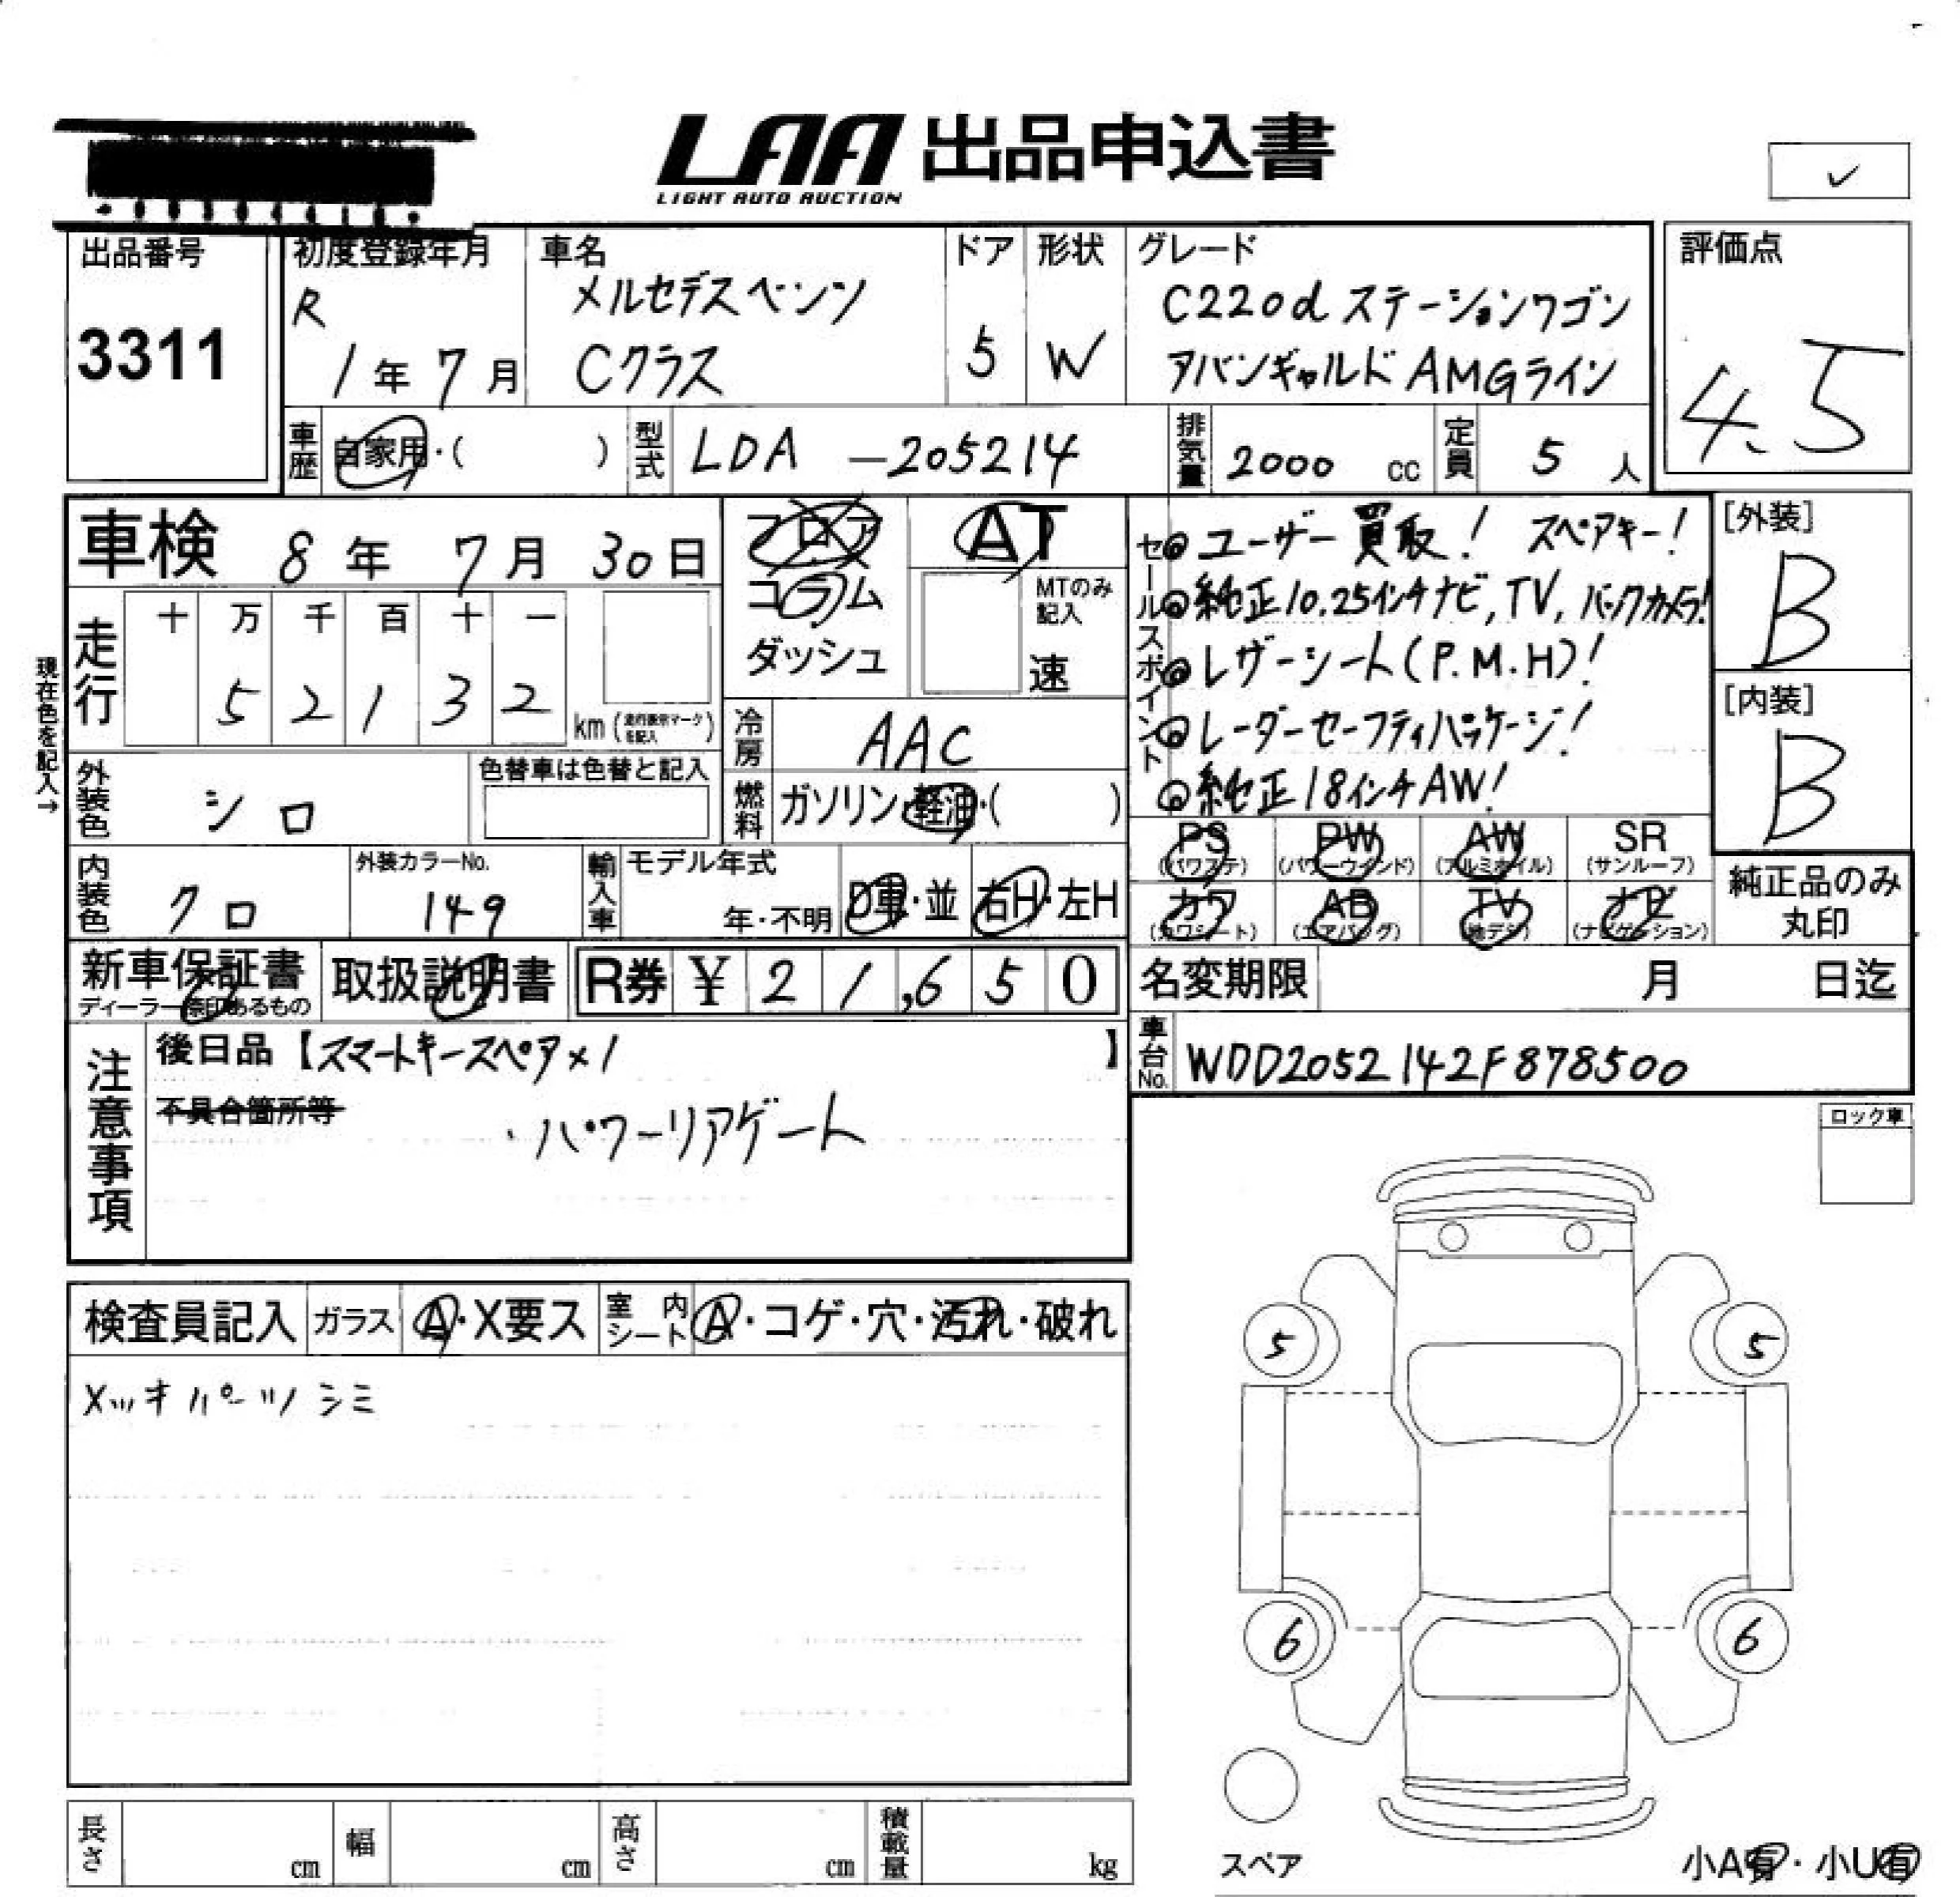 LAA 出品申込書
LIGHT AUTO AUCTION
✓
出品番号
3311
初度登録年月
R
1年 7月
車名
メルセデスベンツ
Cクラス
ドア
5
形状
W
グレード
C220d ステーションワゴン
アバンギャルド AMGライン
評価点
4.5
車歴 自家用・( )
型式 LDA -205214
排気量 2000 cc
定員 5 人
車検 8年 7月 30日
フロア
コラム
ダッシュ
AT
MTのみ記入
速
セールスポイント
◎ユーザー買取! スペアキー!
◎純正10.25インチナビ, TV, バックカメラ!
◎レザーシート(P.M.H)!
◎レーダーセーフティパッケージ!
◎純正18インチAW!
[外装]
B
[内装]
B
現在色を記入→
走行
十 万 千 百 十 一
5 2 1 3 2
km (走行表示マークを記入)
冷房 AAC
外装色 シロ
色替車は色替と記入
燃料 ガソリン・軽油・( )
PS (パワステ)
PW (パワーウインド)
AW (アルミホイル)
SR (サンルーフ)
カワ (カワシート)
AB (エアバッグ)
TV (地デジ)
ナビ (ナビゲーション)
純正品のみ
丸印
内装色 クロ
外装カラーNo.
149
輸入車
モデル年式
年・不明
D車・並
右H・左H
新車保証書
取扱説明書
R券 ¥ 21,650
名変期限 月 日迄
注意事項
後日品【スマートキースペア×1 】
不具合箇所等
・パワーリアゲート
車台No. WDD2052142F878500
ロック車
検査員記入
ガラス A・X要ス
室内シート A・コゲ・穴・汚れ・破れ
メッキパーツシミ
5
5
6
6
スペア
小A有・小U有
長さ cm
幅 cm
高さ cm
積載量 kg